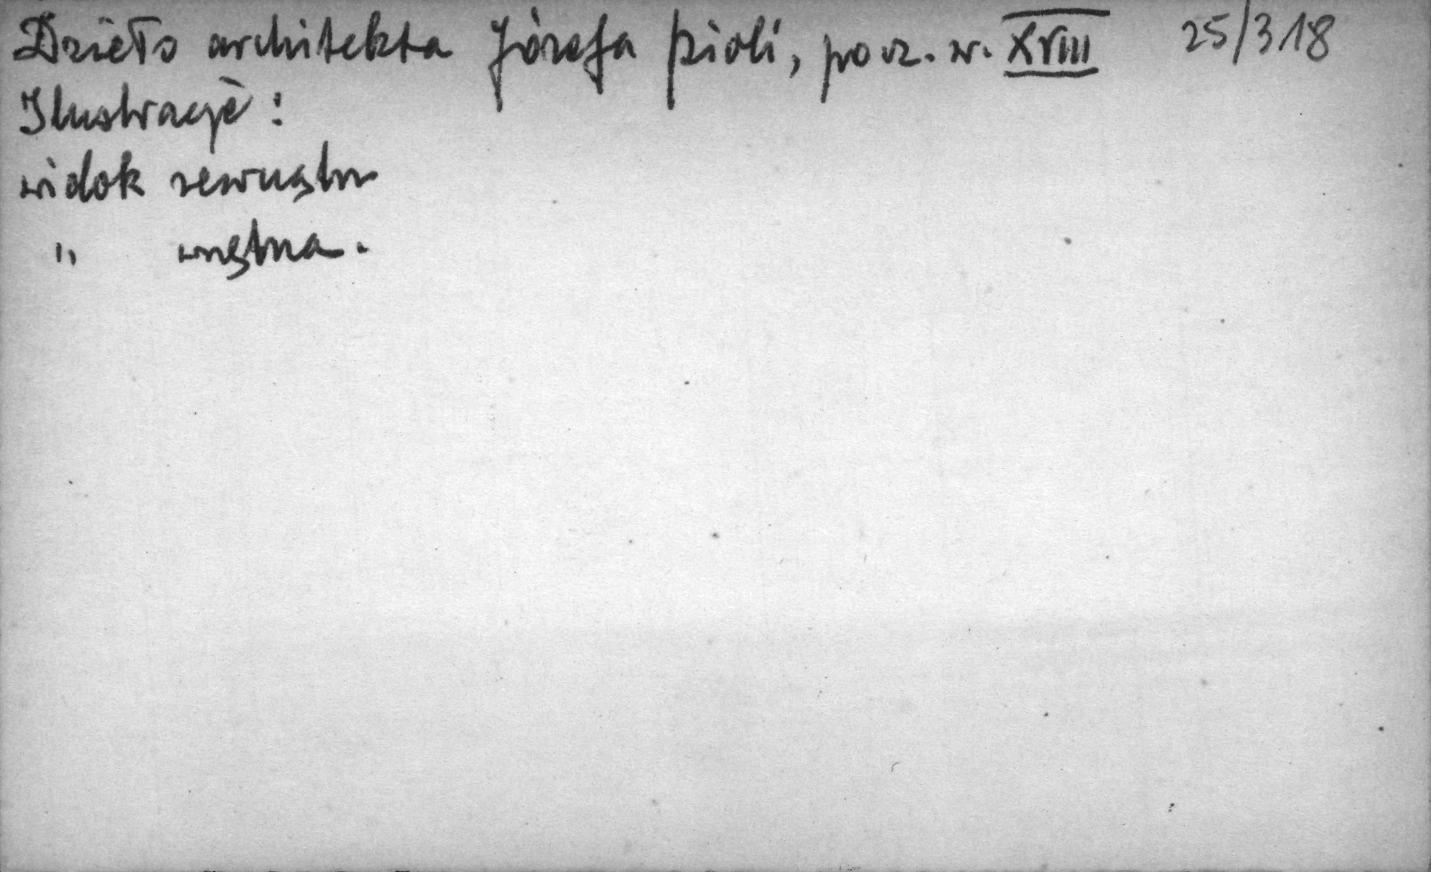 Dzieło architekta Józefa Pioli, pocz. w. XVIII 25/318
Ilustracje:
widok zewnątrz
" wnętrza.